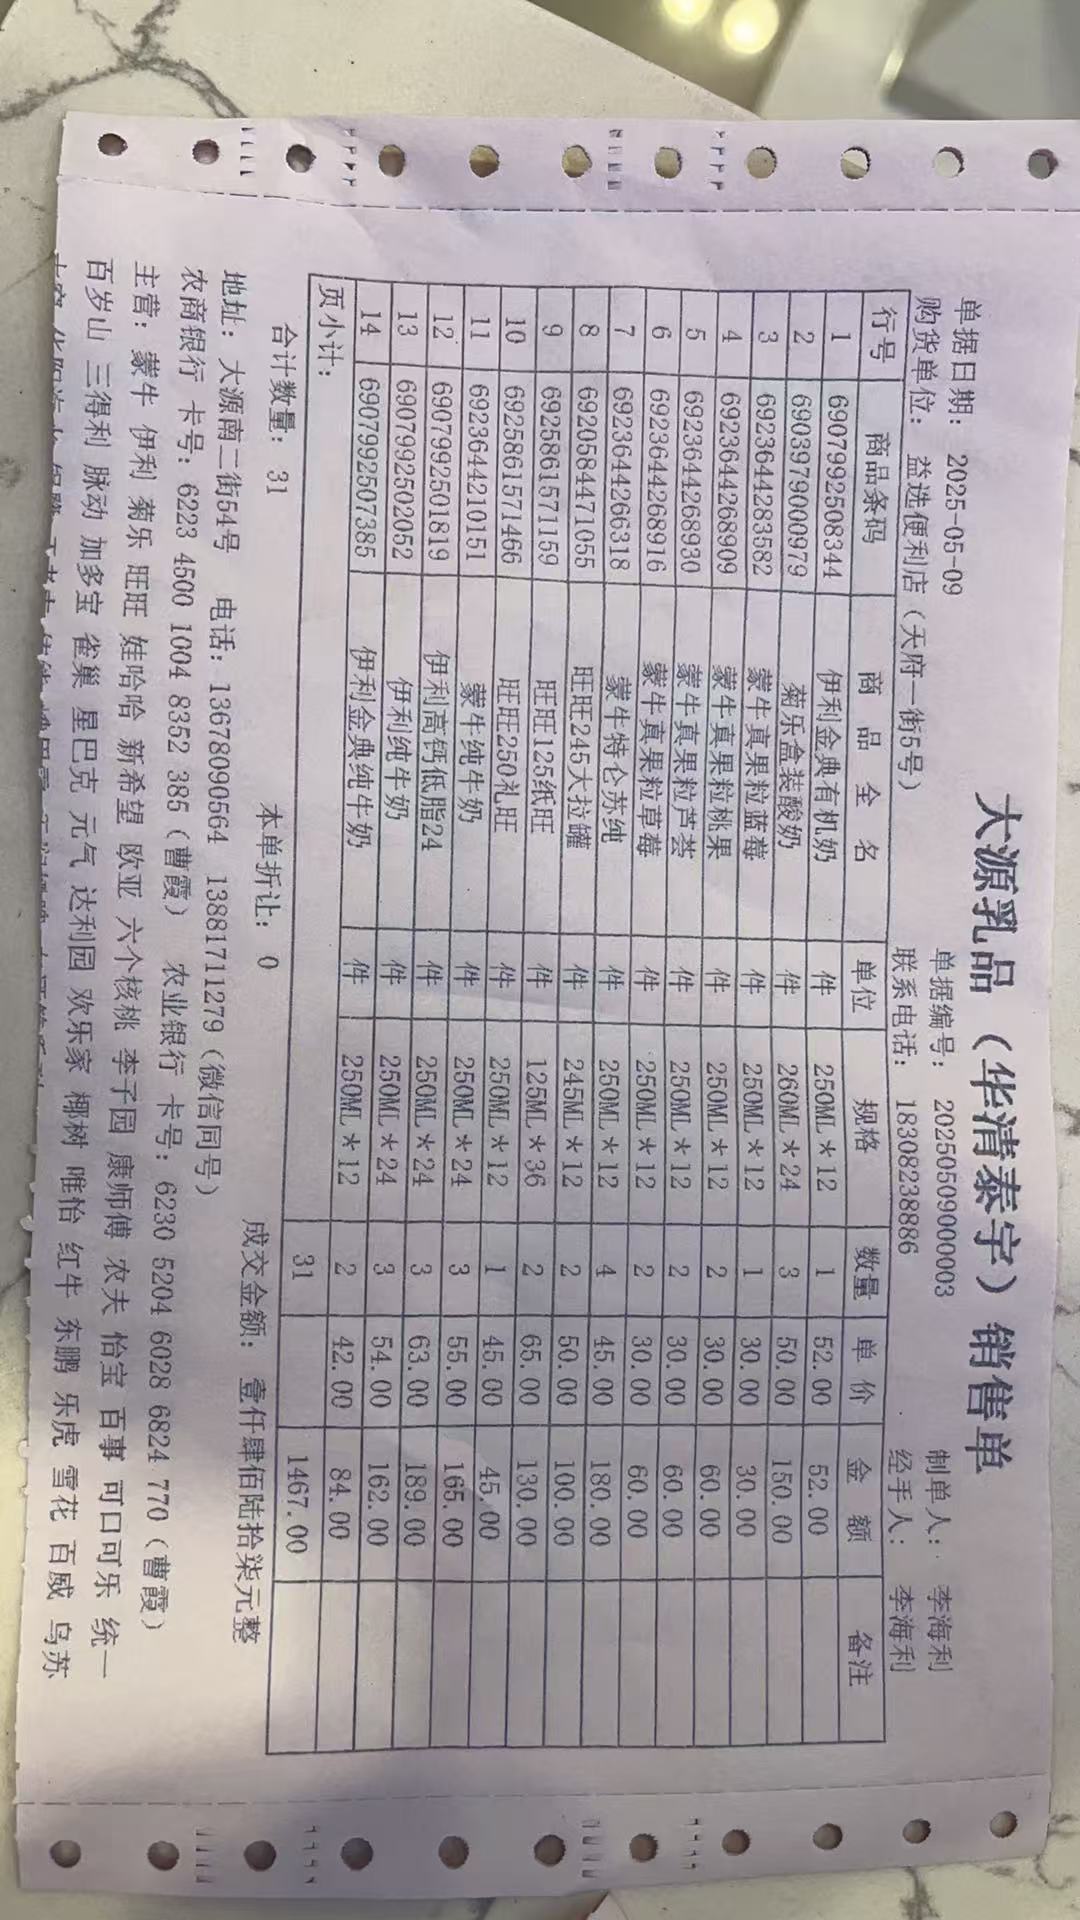 大源乳品（华清泰宇）销售单
单据日期： 2025-05-09 单据编号： 20250509000003 制单人： 李海利
购货单位： 益选便利店（天府一街5号） 联系电话： 18308238886 经手人： 李海利
行号 商品条码 商 品 全 名 单位 规格 数量 单 价 金 额 备注
1 6907992508344 伊利金典有机奶 件 250ML*12 1 52.00 52.00
2 6903979000979 菊乐盒装酸奶 件 260ML*24 3 50.00 150.00
3 6923644283582 蒙牛真果粒蓝莓 件 250ML*12 1 30.00 30.00
4 6923644268909 蒙牛真果粒桃果 件 250ML*12 2 30.00 60.00
5 6923644268930 蒙牛真果粒芦荟 件 250ML*12 2 30.00 60.00
6 6923644268916 蒙牛真果粒草莓 件 250ML*12 2 30.00 60.00
7 6923644266318 蒙牛特仑苏纯 件 250ML*12 4 45.00 180.00
8 6920584471055 旺旺245大拉罐 件 245ML*12 2 50.00 100.00
9 6925861571159 旺旺125纸旺 件 125ML*36 2 65.00 130.00
10 6925861571466 旺旺250礼旺 件 250ML*12 1 45.00 45.00
11 6923644210151 蒙牛纯牛奶 件 250ML*24 3 55.00 165.00
12 6907992501819 伊利高钙低脂24 件 250ML*24 3 63.00 189.00
13 6907992502052 伊利纯牛奶 件 250ML*24 3 54.00 162.00
14 6907992507385 伊利金典纯牛奶 件 250ML*12 2 42.00 84.00
页小计： 31 1467.00
合计数量： 31 本单折让： 0 成交金额： 壹仟肆佰陆拾柒元整
地址：大源南二街54号 电话：13678090564 13881711279（微信同号）
农商银行 卡号：6223 4500 1004 8352 385（曹霞） 农业银行 卡号：6230 5204 6028 6824 770（曹霞）
主营：蒙牛 伊利 菊乐 旺旺 娃哈哈 新希望 欧亚 六个核桃 李子园 康师傅 农夫 怡宝 百事 可口可乐 统一
百岁山 三得利 脉动 加多宝 雀巢 星巴克 元气 达利园 欢乐家 椰树 唯怡 红牛 东鹏 乐虎 雪花 百威 乌苏